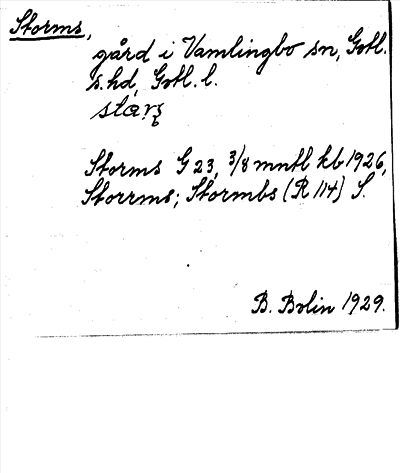 Storms,
gård i Vamlingbo sn, Gotl.
s. hd, Gotl. l.
Storms G 23, 3/8 mntl kb 1926,
Storrms; Stormbs (R 114) S.
B. Bolin 1929.